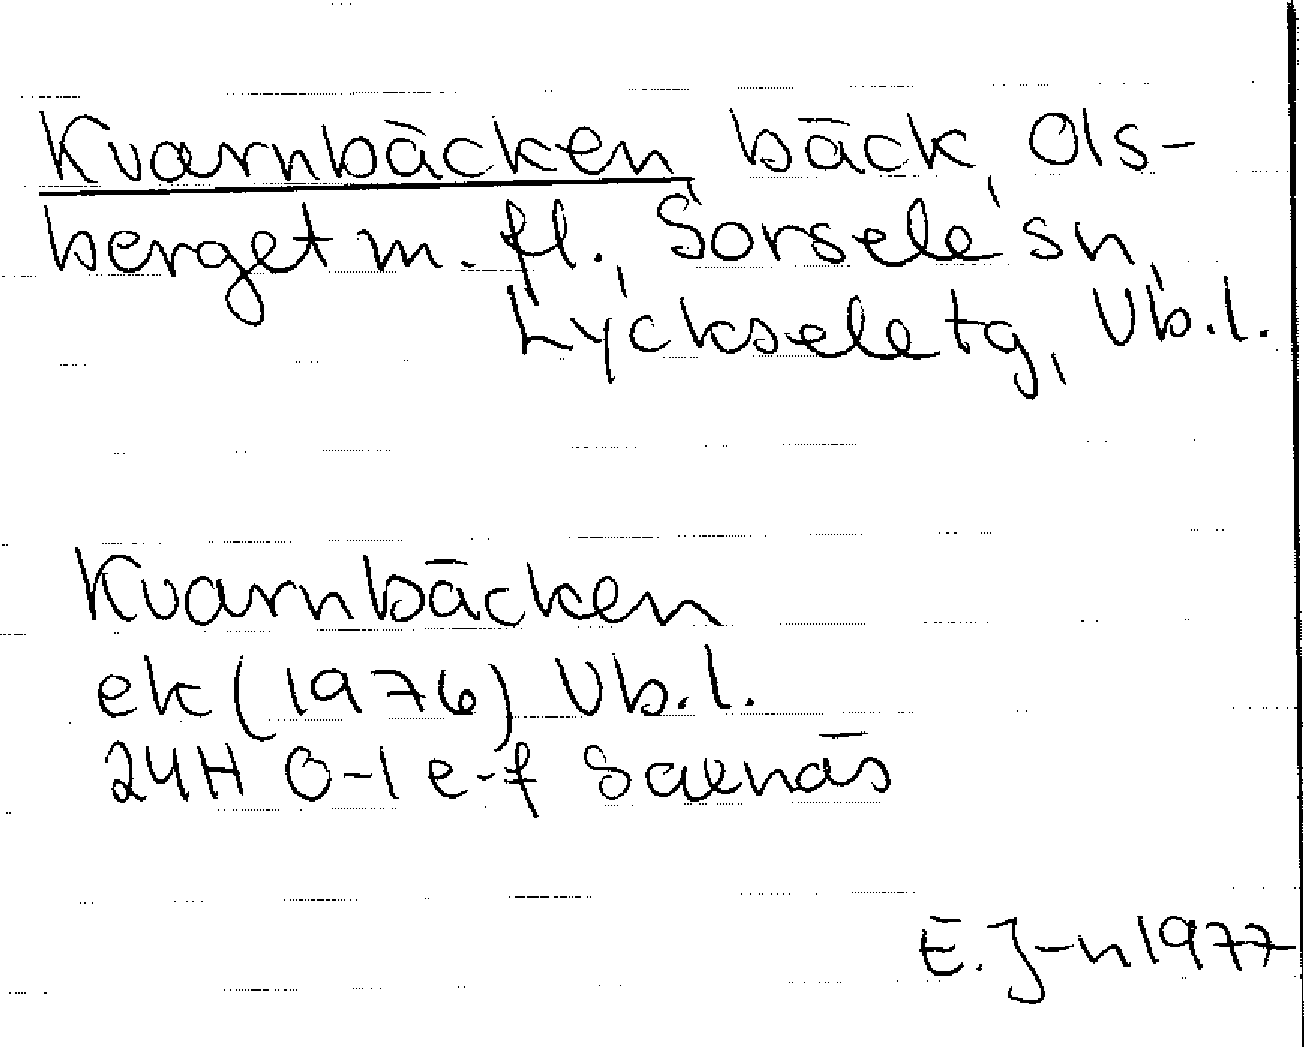 Kvarnbäcken, bäck, Ols-
berget m. fl., Sorsele sn,
Lycksele tg, Vb.l.
Kvarnbäcken
ek (1976) Vb.l.
24H 0-1 e-f Saxnäs
E. J-n 1977